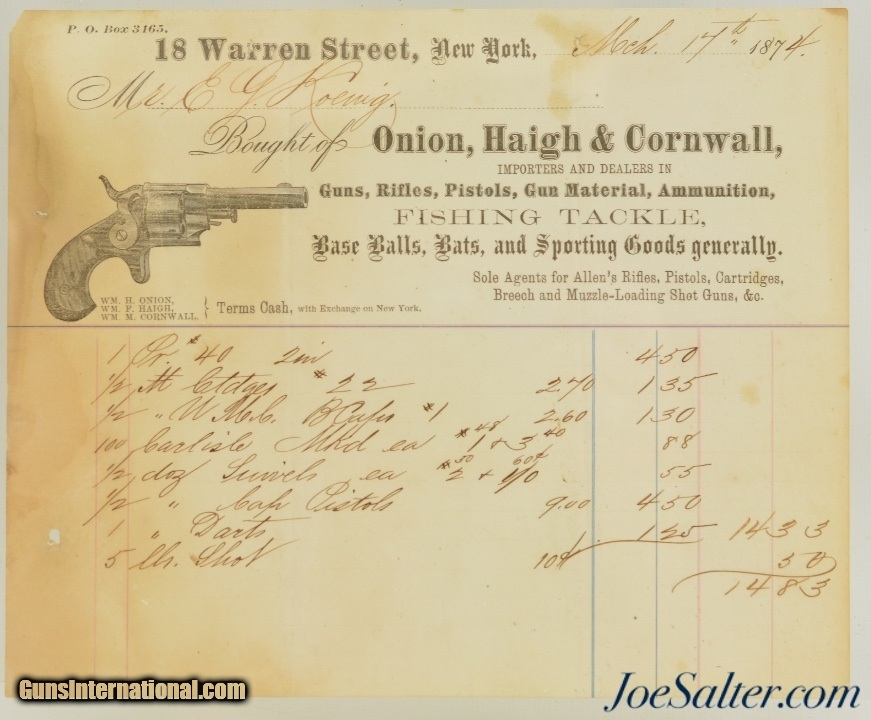 P. O. Box 3165.
18 Warren Street, New York, Mch. 17th 1874.
Mr. E. G. Koenig.
Bought of Onion, Haigh & Cornwall,
IMPORTERS AND DEALERS IN
Guns, Rifles, Pistols, Gun Material, Ammunition,
FISHING TACKLE,
Base Balls, Bats, and Sporting Goods generally.
Sole Agents for Allen's Rifles, Pistols, Cartridges,
Breech and Muzzle-Loading Shot Guns, &c.
WM. H. ONION,
WM. F. HAIGH,
WM. M. CORNWALL.
Terms Cash, with Exchange on New York.
1 Pr. #40 2in 450
1/2 M Ctdges #22 2.70 135
1/2 " U.M.C. B Caps #1 2.60 130
100 Carlisle Mkd ea #1 48 & 3 40 88
1/2 doz Swivels ea #2 50 + 1/0 60¢ 55
1/2 " Cap Pistols 9.00 450
1 " Darts 125 1433
5 lbs. Shot 10¢ 50
1483
GunsInternational.com
JoeSalter.com